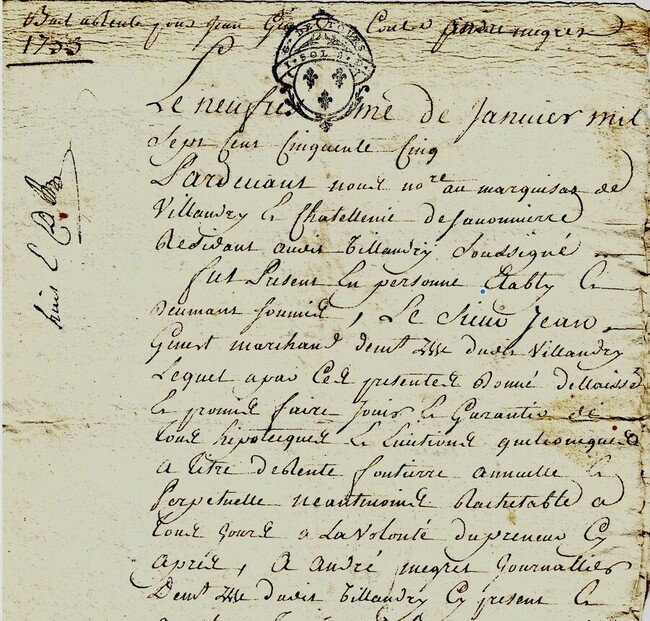 Bail a Rente pour Jean Contre andre megret
1755
GEN. DE TOURS
SOL
Le neufie me de Janvier mil
Sept Cent Cinquente Cinq
Pardevant nous nore au marquisat de
Villandry et Chatellenie de Savonniere
Residant audit Villandry Soussigné
fut Present en personne Etably et
deument soumis, Le Sieur Jean
marchand demt psse dudit Villandry
Lequel a par Ces presentes donné dellaissé
et promis faire Jouir et Garantir de
tous hipotecques et Evictions quelconques
a titre de Rente fontierre annuelle et
Perpetuelle neantmoins Rachetable a
tous Jours a La Volonté du preneur Cy
après, A André megret Journallier
Demt psse dudit Villandry Cy present et